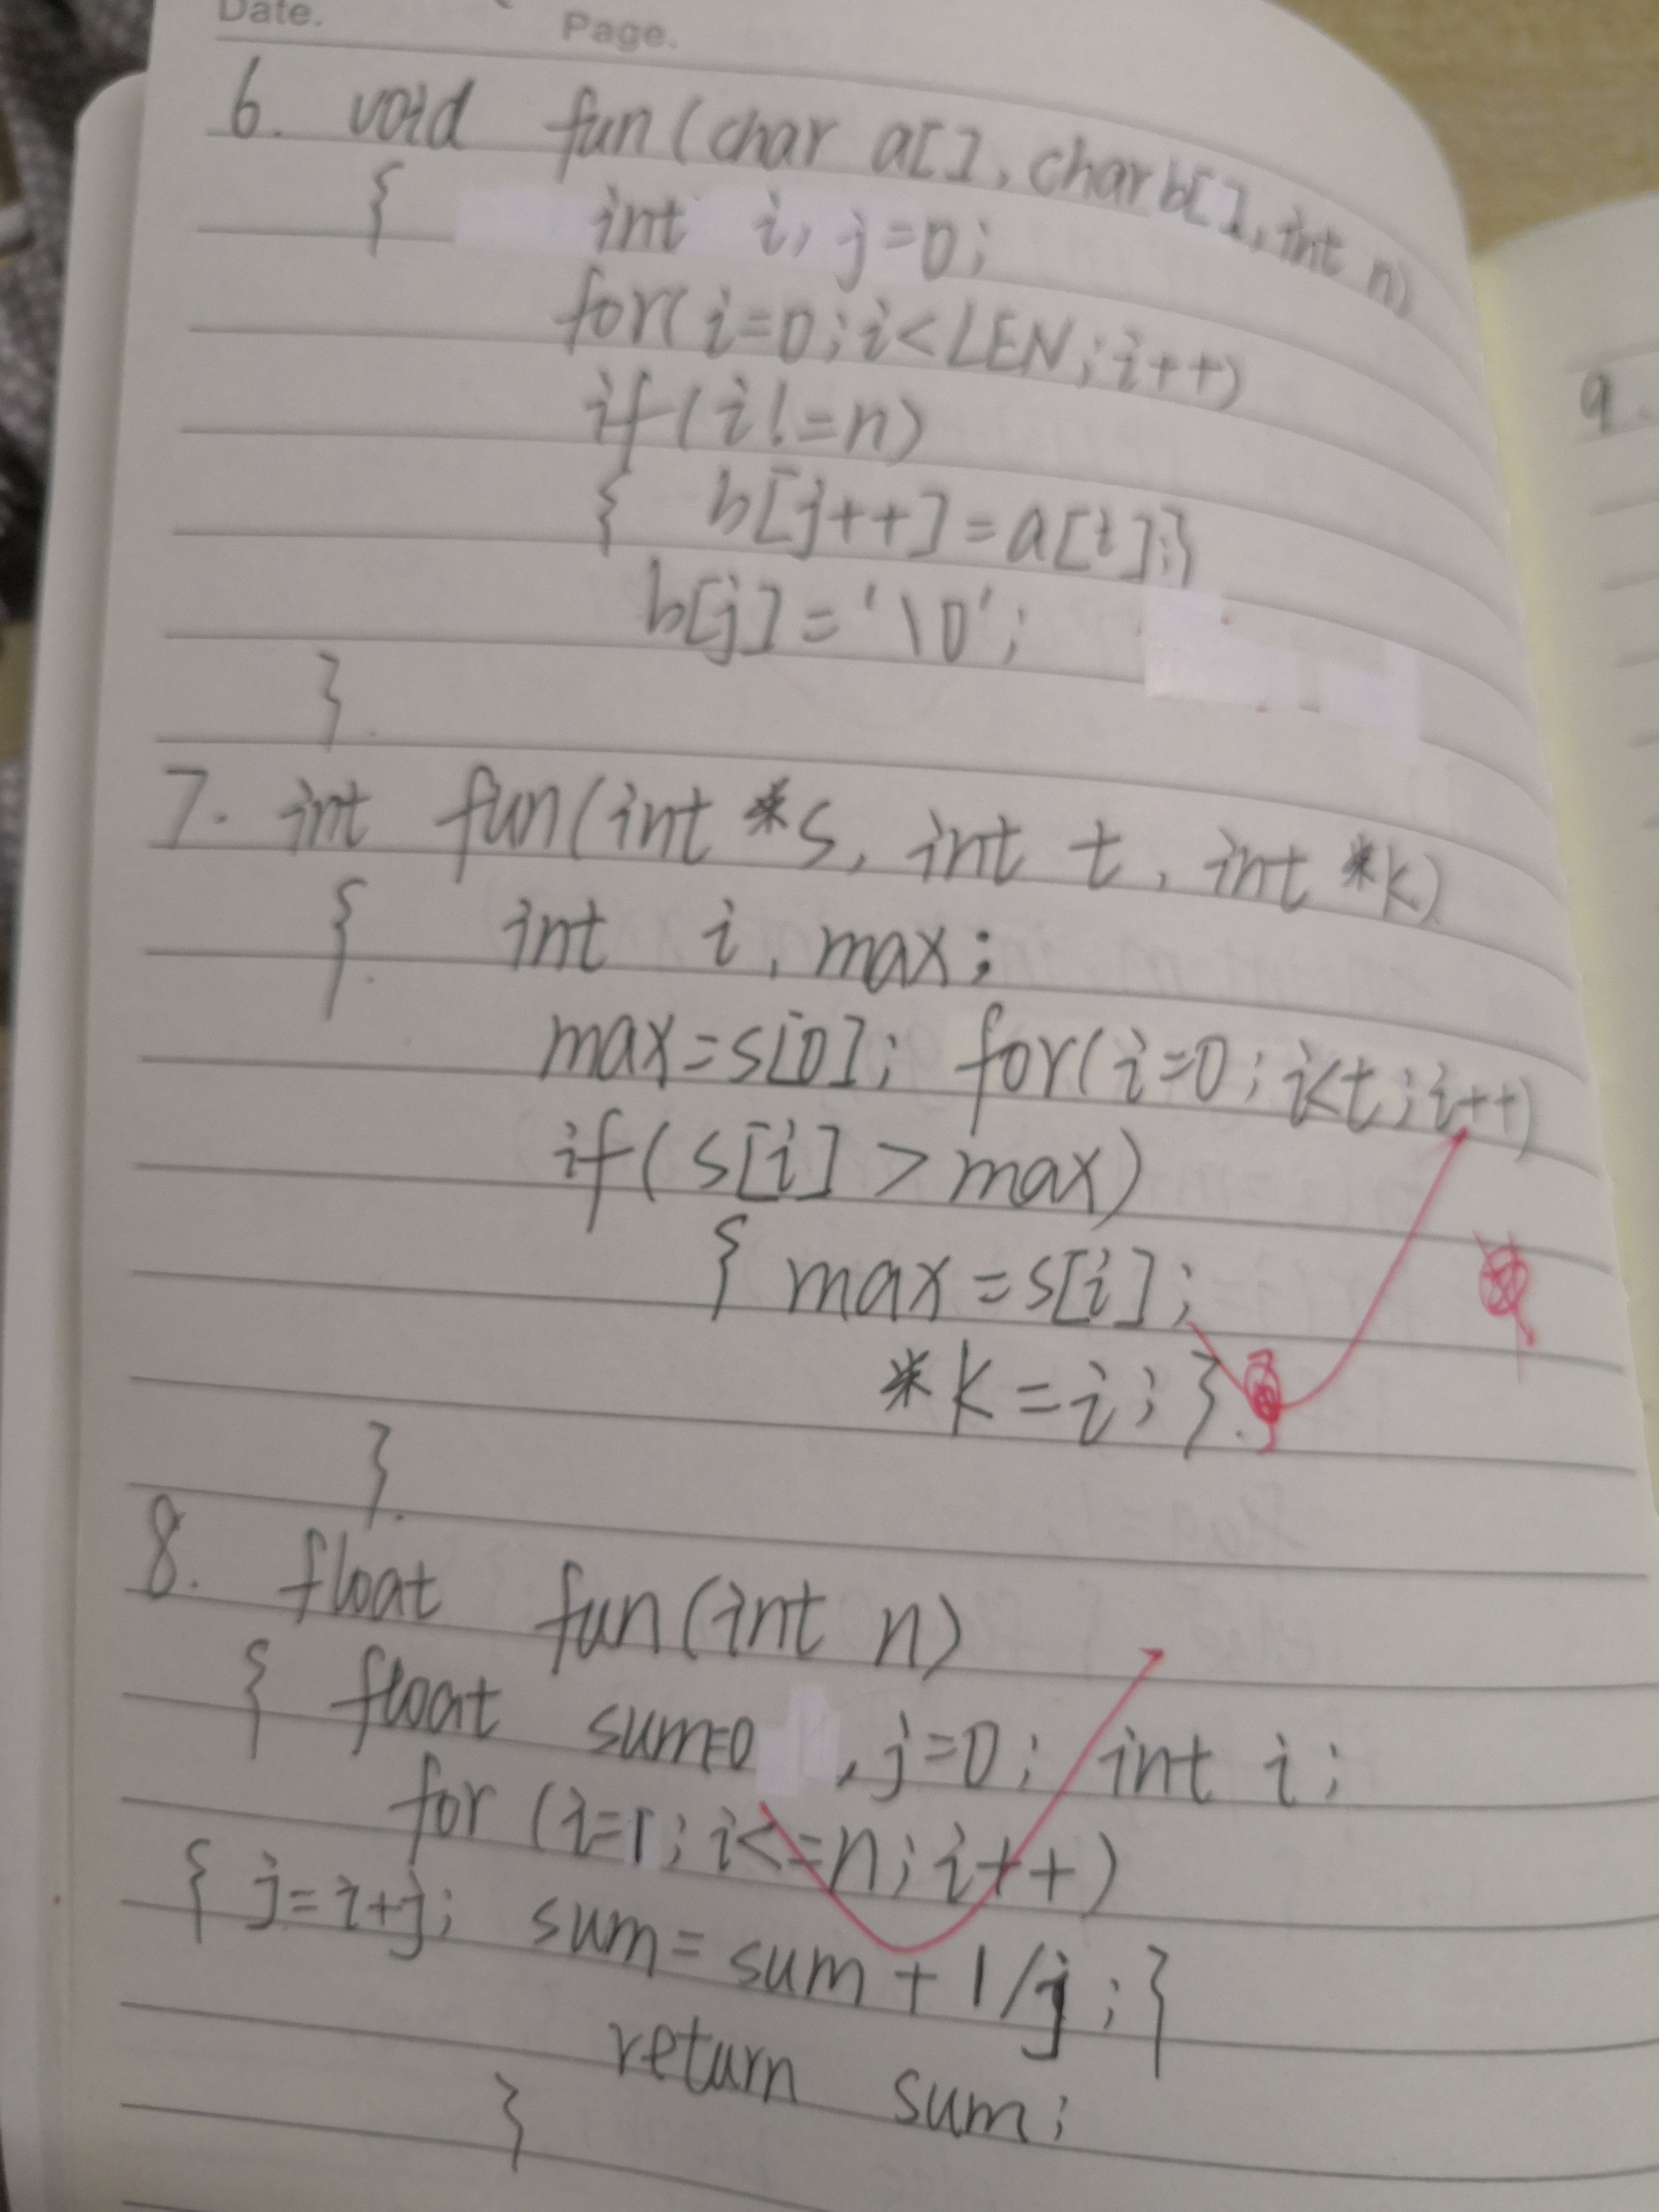 Date.
Page.
6. void fun(char a[], char b[], int n)
{ int i, j=0;
for(i=0;i<LEN;i++)
if(i!=n)
{ b[j++]=a[i];}
b[j]='\0';
}
7. int fun(int *s, int t, int *k)
{ int i, max;
max=s[0]; for(i=0;i<t;i++)
if(s[i]>max)
{ max=s[i];
*k=i;}
}
8. float fun(int n)
{ float sum=0 ,j=0; int i;
for (i=1;i<=n;i++)
{ j=i+j; sum=sum+1/j;}
return sum;
}
9.